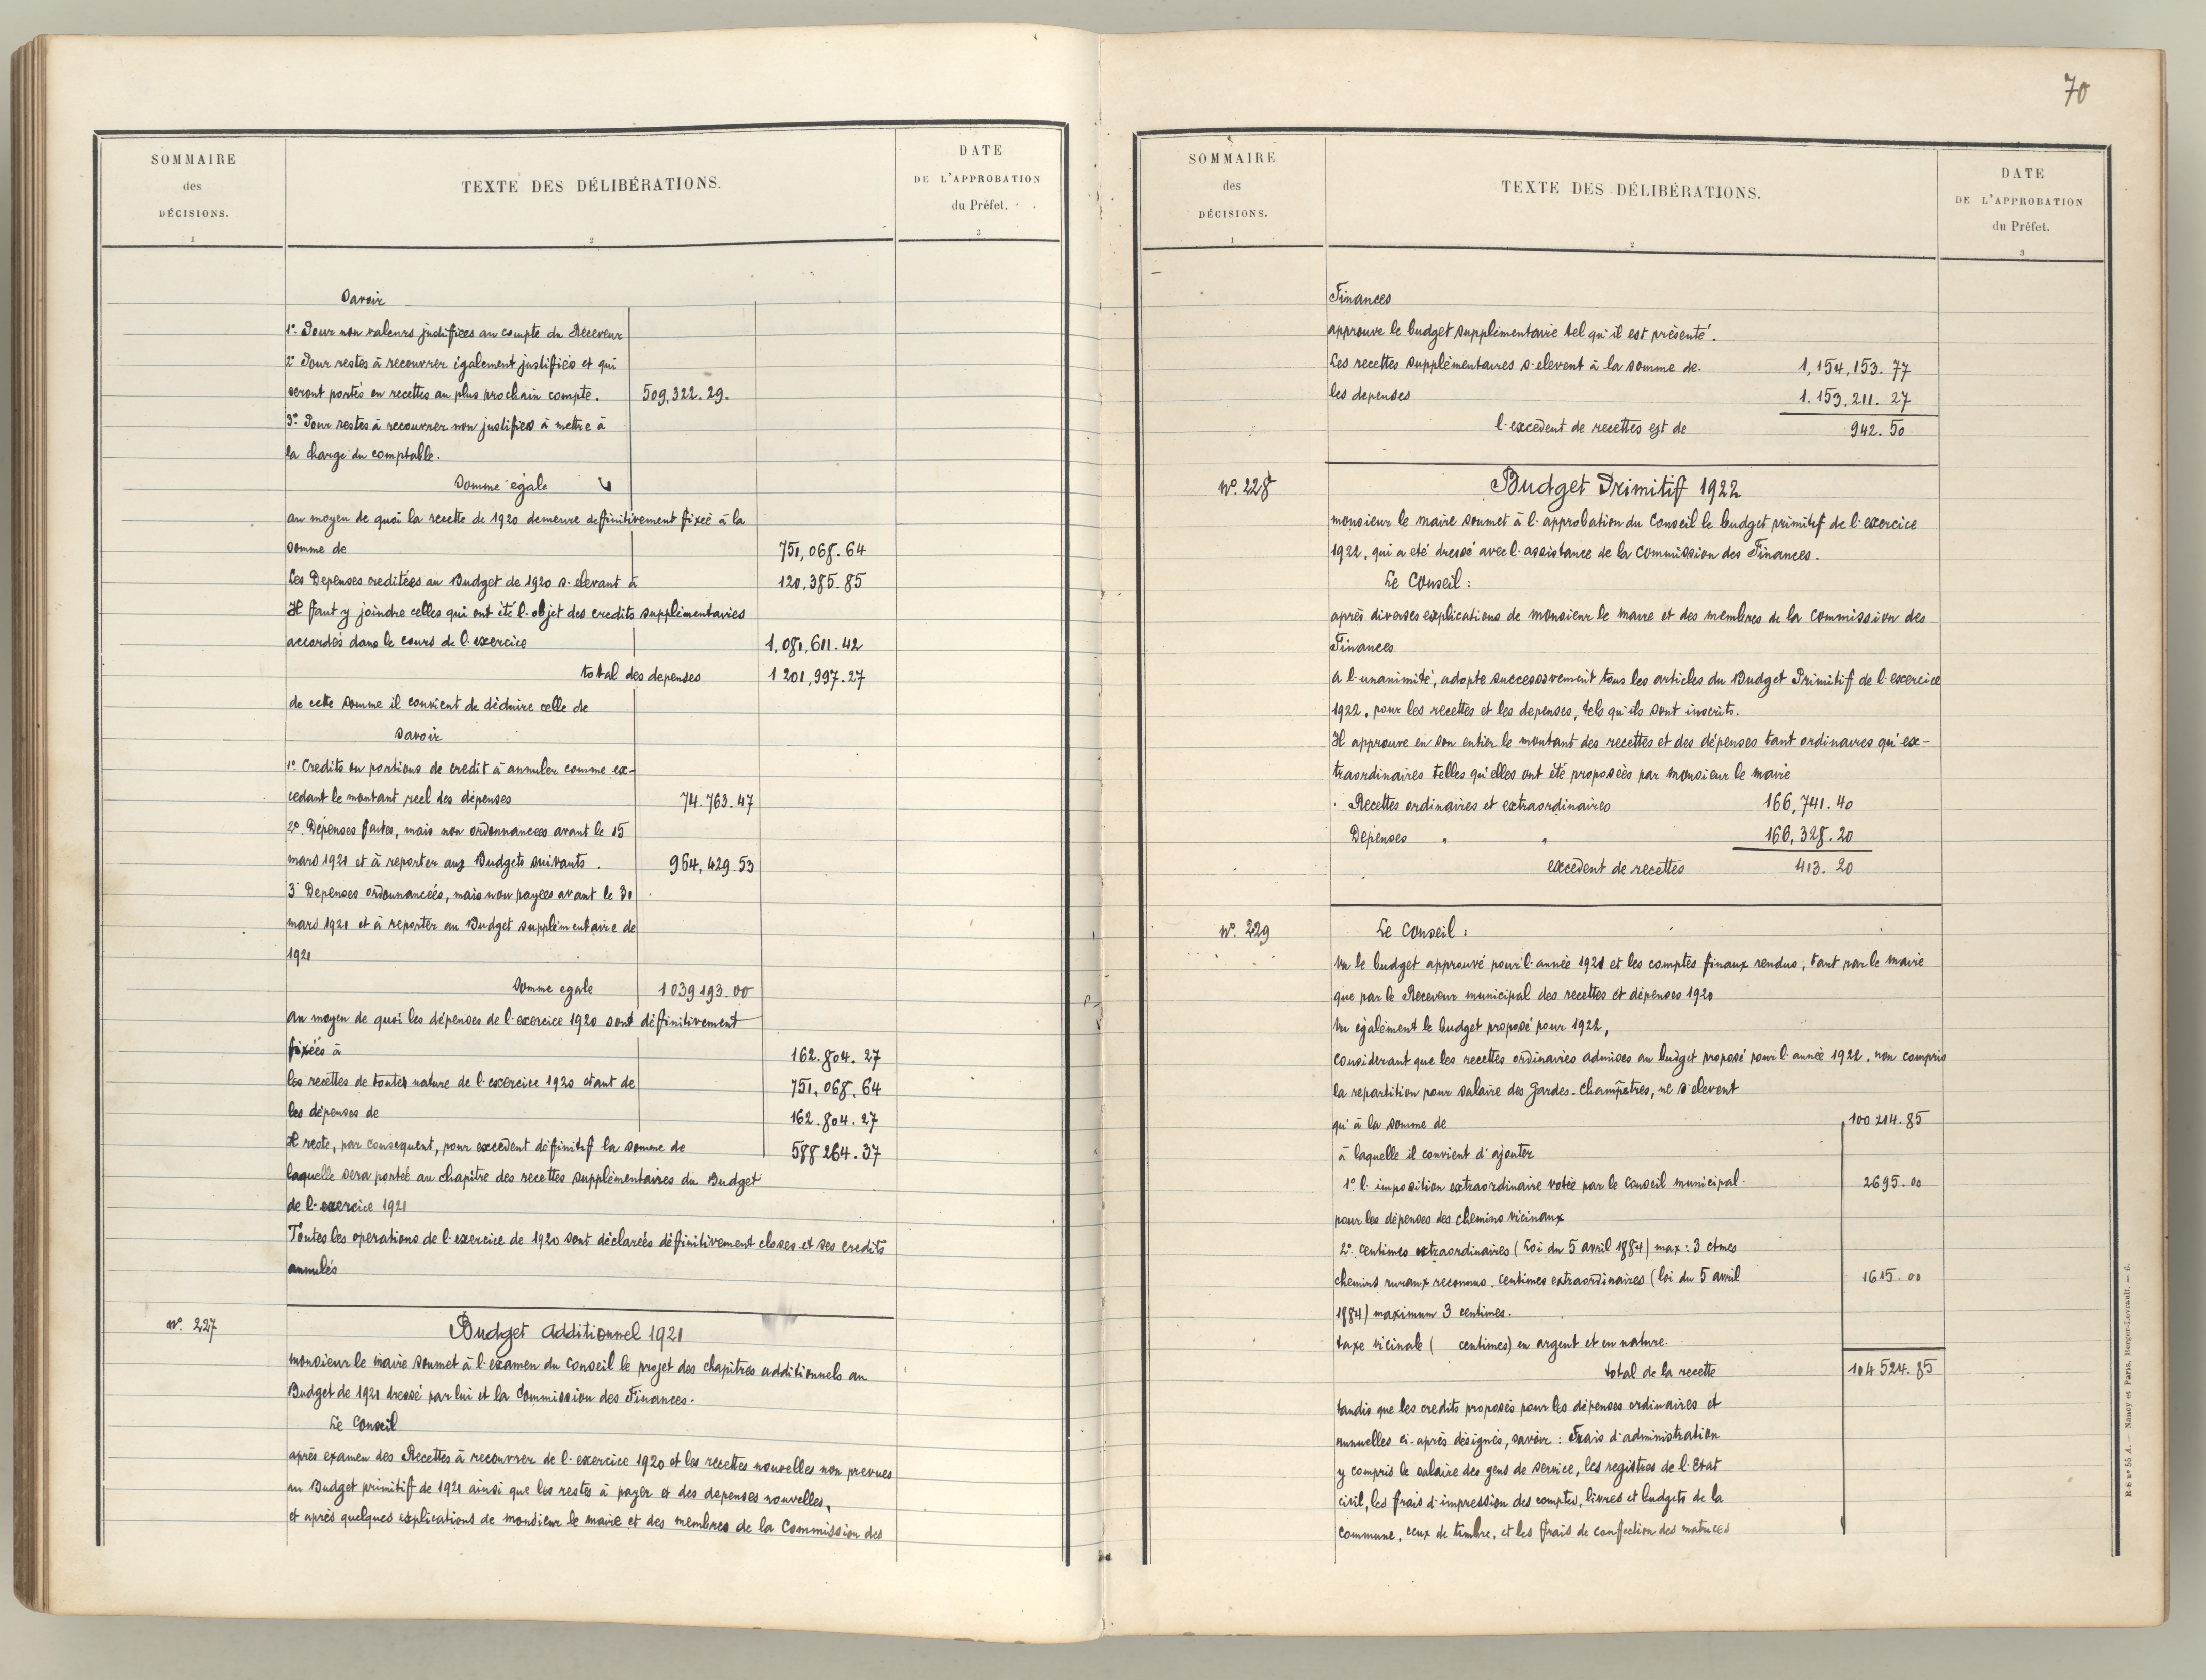 SOMMAIRE
des
DÉCISIONS.
1
TEXTE DES DÉLIBÉRATIONS.
2
DATE
DE L'APPROBATION
du Préfet.
3
Savoir
1º. Pour non valeurs justifiées au compte du Receveur
2º Pour restes à recouvrer également justifiés et qui
seront portés en recettes au plus prochain compte. 509,322.29.
3º. Pour restes à recouvrer non justifiés à mettre à
la charge du comptable.
Somme égale
au moyen de quoi la recette de 1920 demeure deffinitivement fixée à la
somme de 751,068.64
Les Depenses creditées au Budget de 1920 s'elevant à 120,385.85
Il faut y joindre celles qui ont été l'objet des credits supplémentaires
accordés dans le cours de l'exercice 1,081,611.42
total des depenses 1 201,997.27
de cette somme il convient de déduire celle de
savoir
1º Credits ou portions de credit à annuler comme ex-
cedant le montant reel des dépenses 74.763.47
2º Dépenses faites, mais non ordonnancees avant le 15
mars 1921 et à reporter aux Budgets suivants. 964,429.53
3º Depenses ordonnancées, mais non payees avant le 31
mars 1921 et à reporter au Budget supplémentaire de
1921
Somme egale 1 039 193.00
au moyen de quoi les dépenses de l'exercice 1920 sont définitivement
fixées à 162.804.27
les recettes de toutes nature de l'exercice 1920 etant de 751,068,64
les dépenses de 162.804.27
Il reste, par consequent, pour excédent définitif la somme de 588 264.37
laquelle sera portée au chapitre des recettes supplémentaires du Budget
de l'exercice 1921
Toutes les operations de l'exercice de 1920 sont déclarées définitivement closes et ses credits
annulés
Nº. 227
Budget additionnel 1921
monsieur le maire soumet à l'examen du Conseil le projet des chapitres additionnels au
Budget de 1921 dressé par lui et la Commission des Finances.
Le Conseil
après examen des Recettes à recouvrer de l'exercice 1920 et les recettes nouvelles non prevues
au Budget primitif de 1921 ainsi que les restes à payer et des depenses nouvelles,
et après quelques explications de monsieur le maire et des membres de la Commission des
70
SOMMAIRE
des
DÉCISIONS.
1
TEXTE DES DÉLIBÉRATIONS.
2
DATE
DE L'APPROBATION
du Préfet.
3
Finances
approuve le budget supplémentaire tel qu'il est présenté.
Les recettes supplémentaires s'elevent à la somme de. 1,154,153.77
les depenses 1.153,211.27
l'excédent de recettes est de 942.50
Nº. 228
Budget Primitif 1922
monsieur le maire soumet à l'approbation du Conseil le budget primitif de l'exercice
1922, qui a été dressé avec l'assistance de la Commission des Finances.
Le Conseil :
après diverses explications de monsieur le maire et des membres de la Commission des
Finances
à l'unanimité, adopte successivement tous les articles du Budget Primitif de l'exercice
1922, pour les recettes et les depenses, tels qu'ils sont inscrits.
Il approuve en son entier le montant des recettes et des dépenses tant ordinaires qu'ex-
traordinaires telles qu'elles ont été proposées par monsieur le maire
Recettes ordinaires et extraordinaires 166,741.40
Depenses " " 166,328.20
excédent de recettes 413.20
Nº. 229
Le Conseil :
Vu le budget approuvé pour l'année 1921 et les comptes finaux rendus, tant par le maire
que par le Receveur municipal des recettes et dépenses 1920
Vu également le budget proposé pour 1922,
considerant que les recettes ordinaires admises au budget proposé pour l'année 1922, non compris
la repartition pour salaire des Gardes-Champêtres, ne s'elevent
qu'à la somme de 100 214.85
à laquelle il convient d'ajouter
1º. l'imposition extraordinaire votée par le Conseil municipal 2695.00
pour les dépenses des chemins vicinaux
2º. centimes extraordinaires (Loi du 5 avril 1884) max : 3 ctmes
chemins ruraux reconnus. centimes extraordinaires (loi du 5 avril 1615.00
1884) maximum 3 centimes.
taxe vicinale ( centimes) en argent et en nature.
total de la recette 104 524.85
tandis que les credits proposés pour les dépenses ordinaires et
annuelles ci-après désignés, savoir : Frais d'administration
y compris le salaire des gens de service, les registres de l'Etat
civil, les frais d'impression des comptes, livres et budgets de la
commune, ceux de timbre, et les frais de confection des matrices
R-h nº 55 A. — Nancy et Paris, Berger-Levrault. — 6.